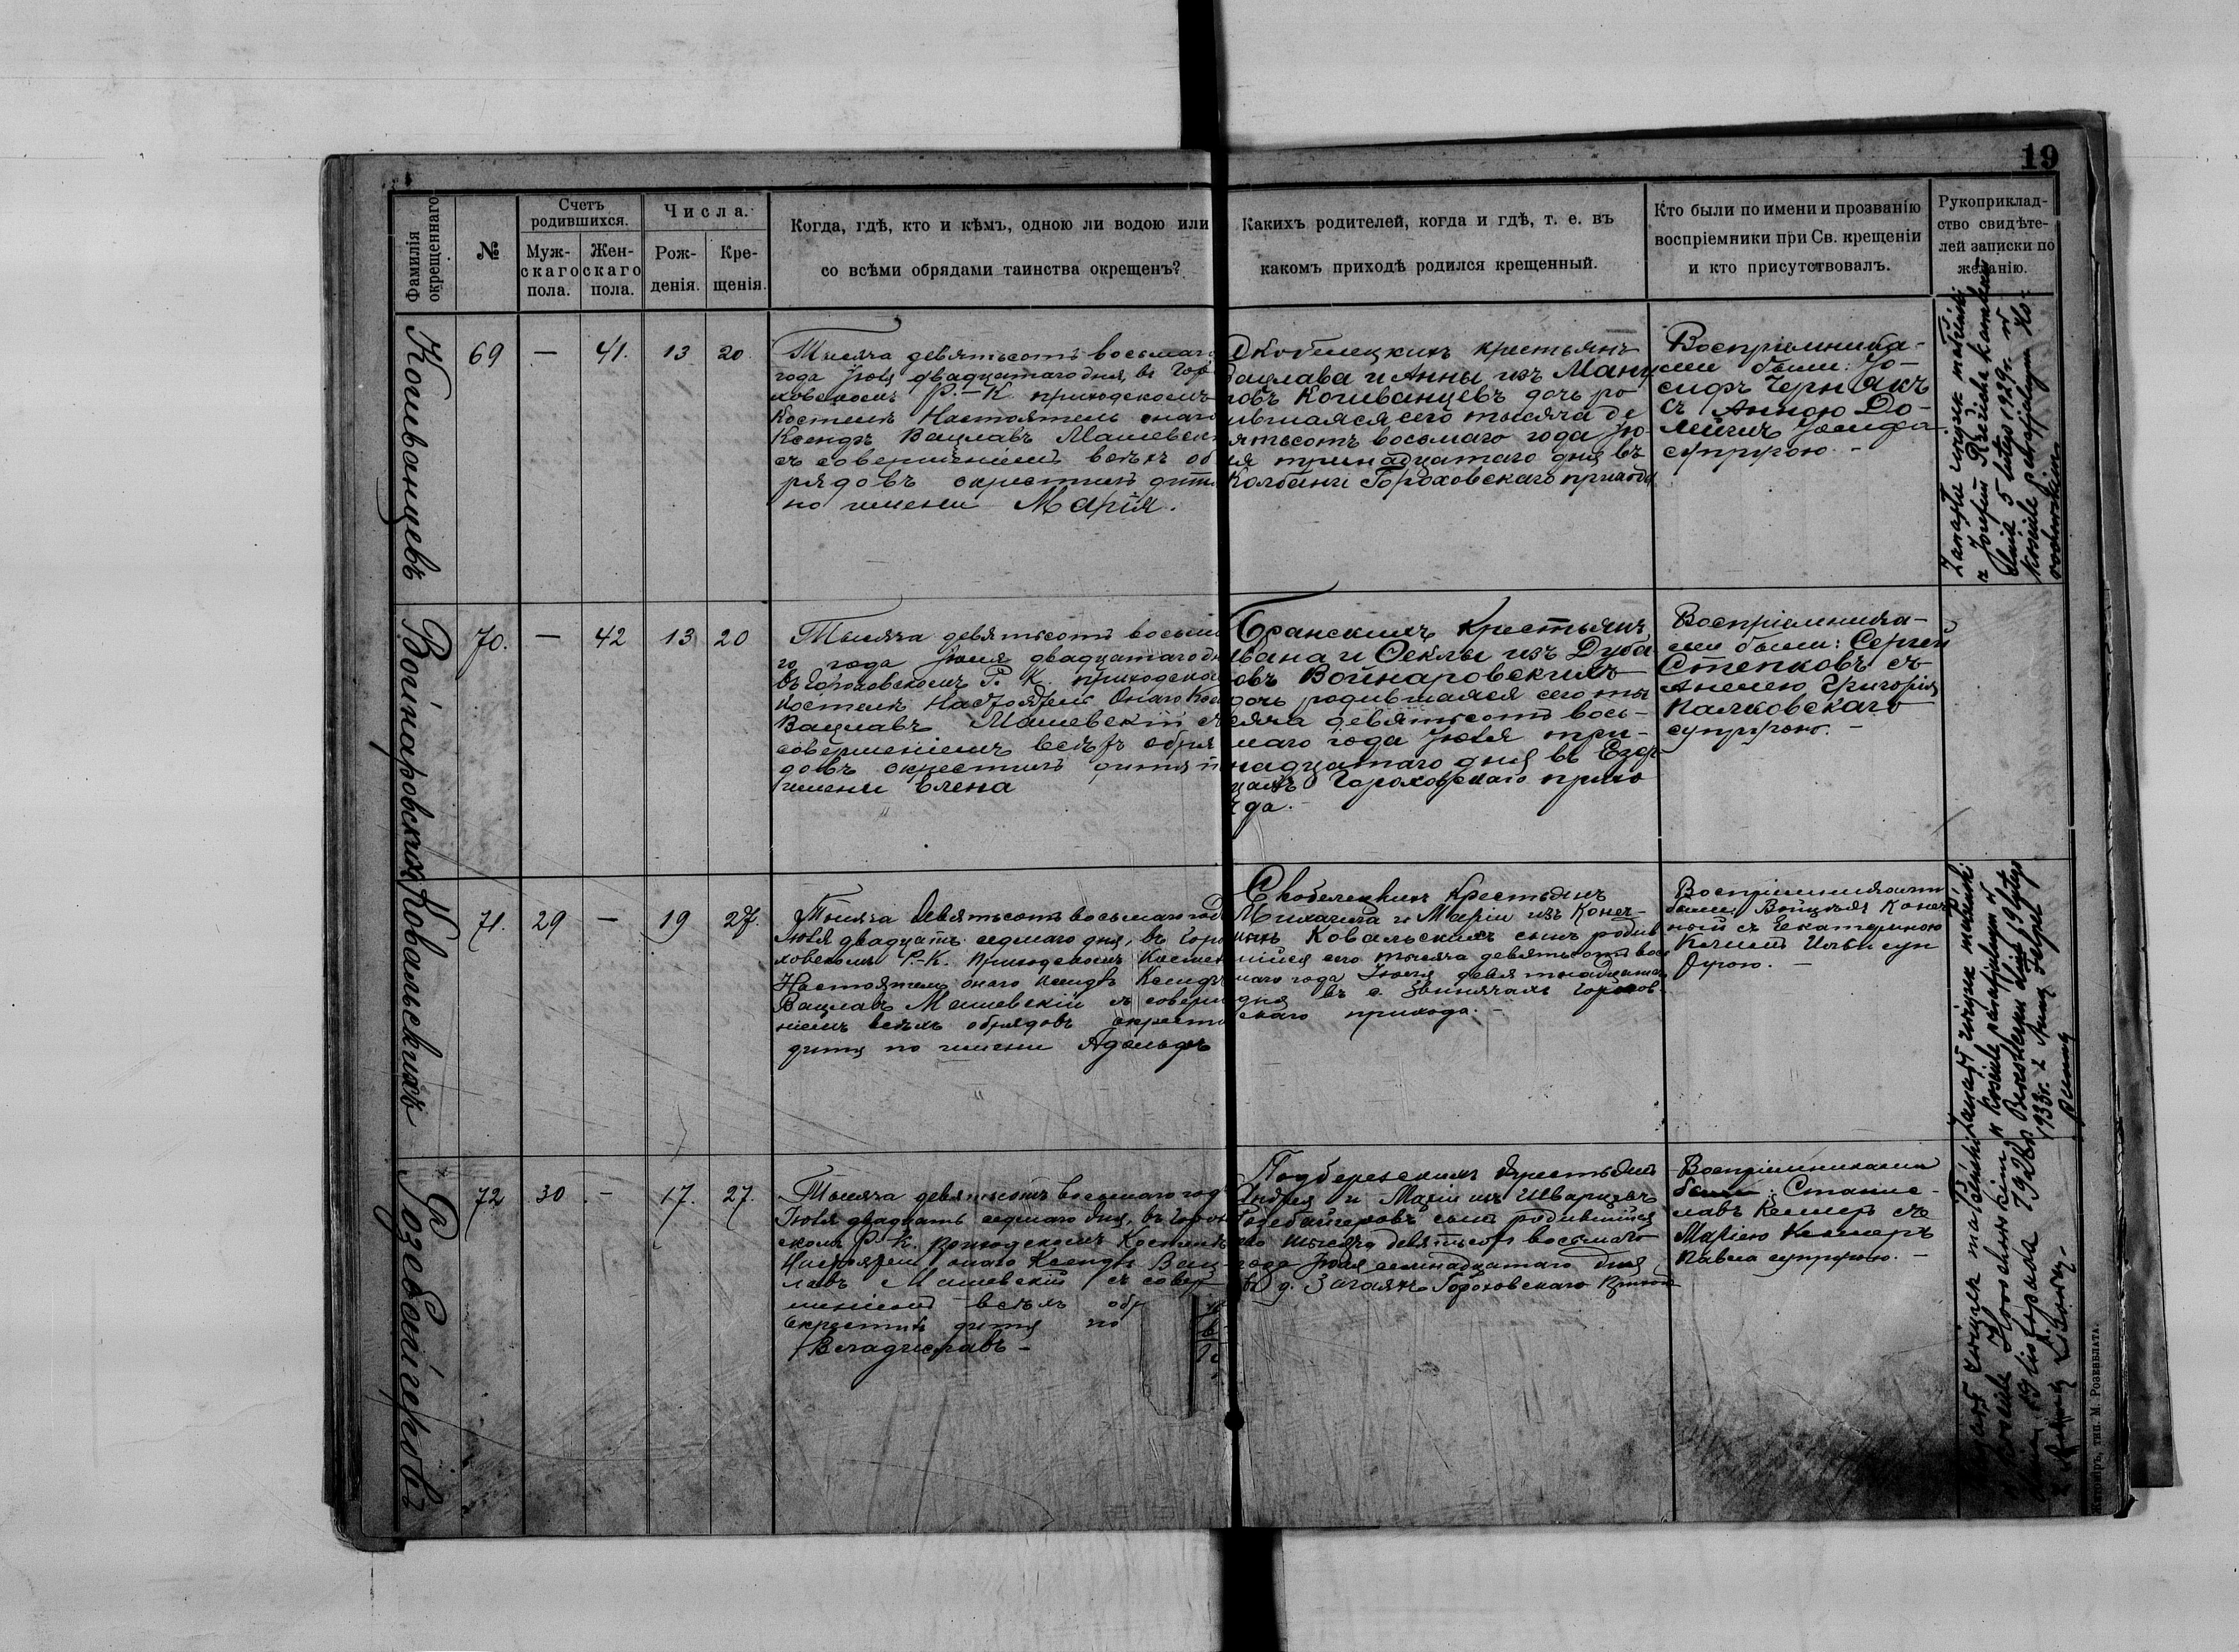 19
Фамилія окрещеннаго
№
Счетъ родившихся.
Муж-скаго пола.
Жен-скаго пола.
Числа.
Рож-денія.
Кре-щенія.
Когда, гдѣ, кто и кѣмъ, одною ли водою или
со всѣми обрядами таинства окрещенъ?
Какихъ родителей, когда и гдѣ, т. е. въ
какомъ приходѣ родился крещенный.
Кто были по имени и прозванію
воспріемники при Св. крещеніи
и кто присутствовалъ.
Рукоприклад-
ство свидѣте-
лей записки по
желанію.
Когиванцевъ
69 — 41. 13 20
Тысяча девятьсотъ восьмаго
года Іюля двадцатаго дня, въ Горо
ховскомъ Р.-К. приходскомъ
Костелѣ Настоятель онаго
Ксендзъ Вацлавъ Машевскі
съ совершеніемъ всѣхъ об
рядовъ окрестилъ дитя
по имени Марія.
крестьянъ
Вацлава и Анны изъ
Когиванцевъ дочь ро
ившаяся сего тысяча де
вятьсотъ восьмаго года Ію-
ля тринадцатаго дня въ
Колбани Гороховскаго прихода
Воспріемника-
ми были: Іо-
сифъ Чернякъ
съ Анною До-
Іосифа
супругою. -
Zawarł związek małżeński
z Józefem
dnia 5 lutego 1929 r. w
kościele parafjalnym Ho-
rochowskim
Войнаровскихъ
70. — 42 13 20
Тысяча девятьсотъ восьма
го года Іюля двадцатаго дн
въ Гороховскомъ Р. К. приходском
Костелѣ Настоятель Онаго Ксе
Вацлавъ Машевскій съ
совершеніемъ всѣхъ обря
довъ окрестилъ дитя п
имени Елена
Бранскихъ Крестьянъ
Ивана и Ѳеклы изъ Дуба
овъ Войнаровскихъ
дочь родившаяся сего ты
сяча девятьсотъ вось-
маго года Іюля три-
надцатаго дня въ
Гороховскаго прихо
да.
Воспріемника-
ми были: Сергей
Степковъ съ
Анелею Григорія
Палковскаго
супругою. -
Ковальскихъ
71. 29 — 19 27.
Тысяча девятьсотъ восьмаго год
Іюля двадцать седьмаго дня, въ Горо
ховскомъ Р.-К. приходскомъ Костел
Настоятель онаго Ксендзъ
Вацлавъ Машевскій съ соверше
ніемъ всѣхъ обрядовъ окрести
дитя по имени Адольфъ
Скобелецкихъ Крестьянъ
Михаила и Маріи изъ Конеч-
ныхъ Ковальскихъ сынъ родив
шійся сего тысяча девятьсотъ вось
маго года Іюля девятнадцатаго
дня въ с. Звинячахъ Горохов-
скаго прихода. -
Воспріемниками
были: Войцѣхъ Конеч
ный съ Екатериною
Ильи суп
ругою. -
Zawarł związek małżeński
w kościele parafjalnym w
Beresteczku dnia 19 lutego
1933 r. z Anną
Розебайгеровъ
72 30 - 17. 27.
Тысяча девятьсотъ восьмаго год
Іюля двадцать седьмаго дня, въ Горохов
скомъ Р. К. приходскомъ Костелѣ
Настоятель онаго Ксендзъ Вац-
лавъ Машевскій съ совер
шеніемъ всѣхъ обр
окрестилъ дитя по
Владиславъ -
Подберезскихъ Крестьянъ
Андрея и Маріи изъ Шварцевъ
Розебайгеровъ сынъ родившійся
сего тысяча девятьсотъ восьмаго
года Іюля семнадцатаго дня
въ д. Загаяхъ Гороховскаго Приход
Воспріемниками
были: Станис-
лавъ Келлеръ съ
Маріею Келлеръ
Павла супругою. -
Zawarł związek małżeński
w kościele Horochowskim
dnia 19 listopada 1928 r.
Житоміръ, тип. М. Розенблата.